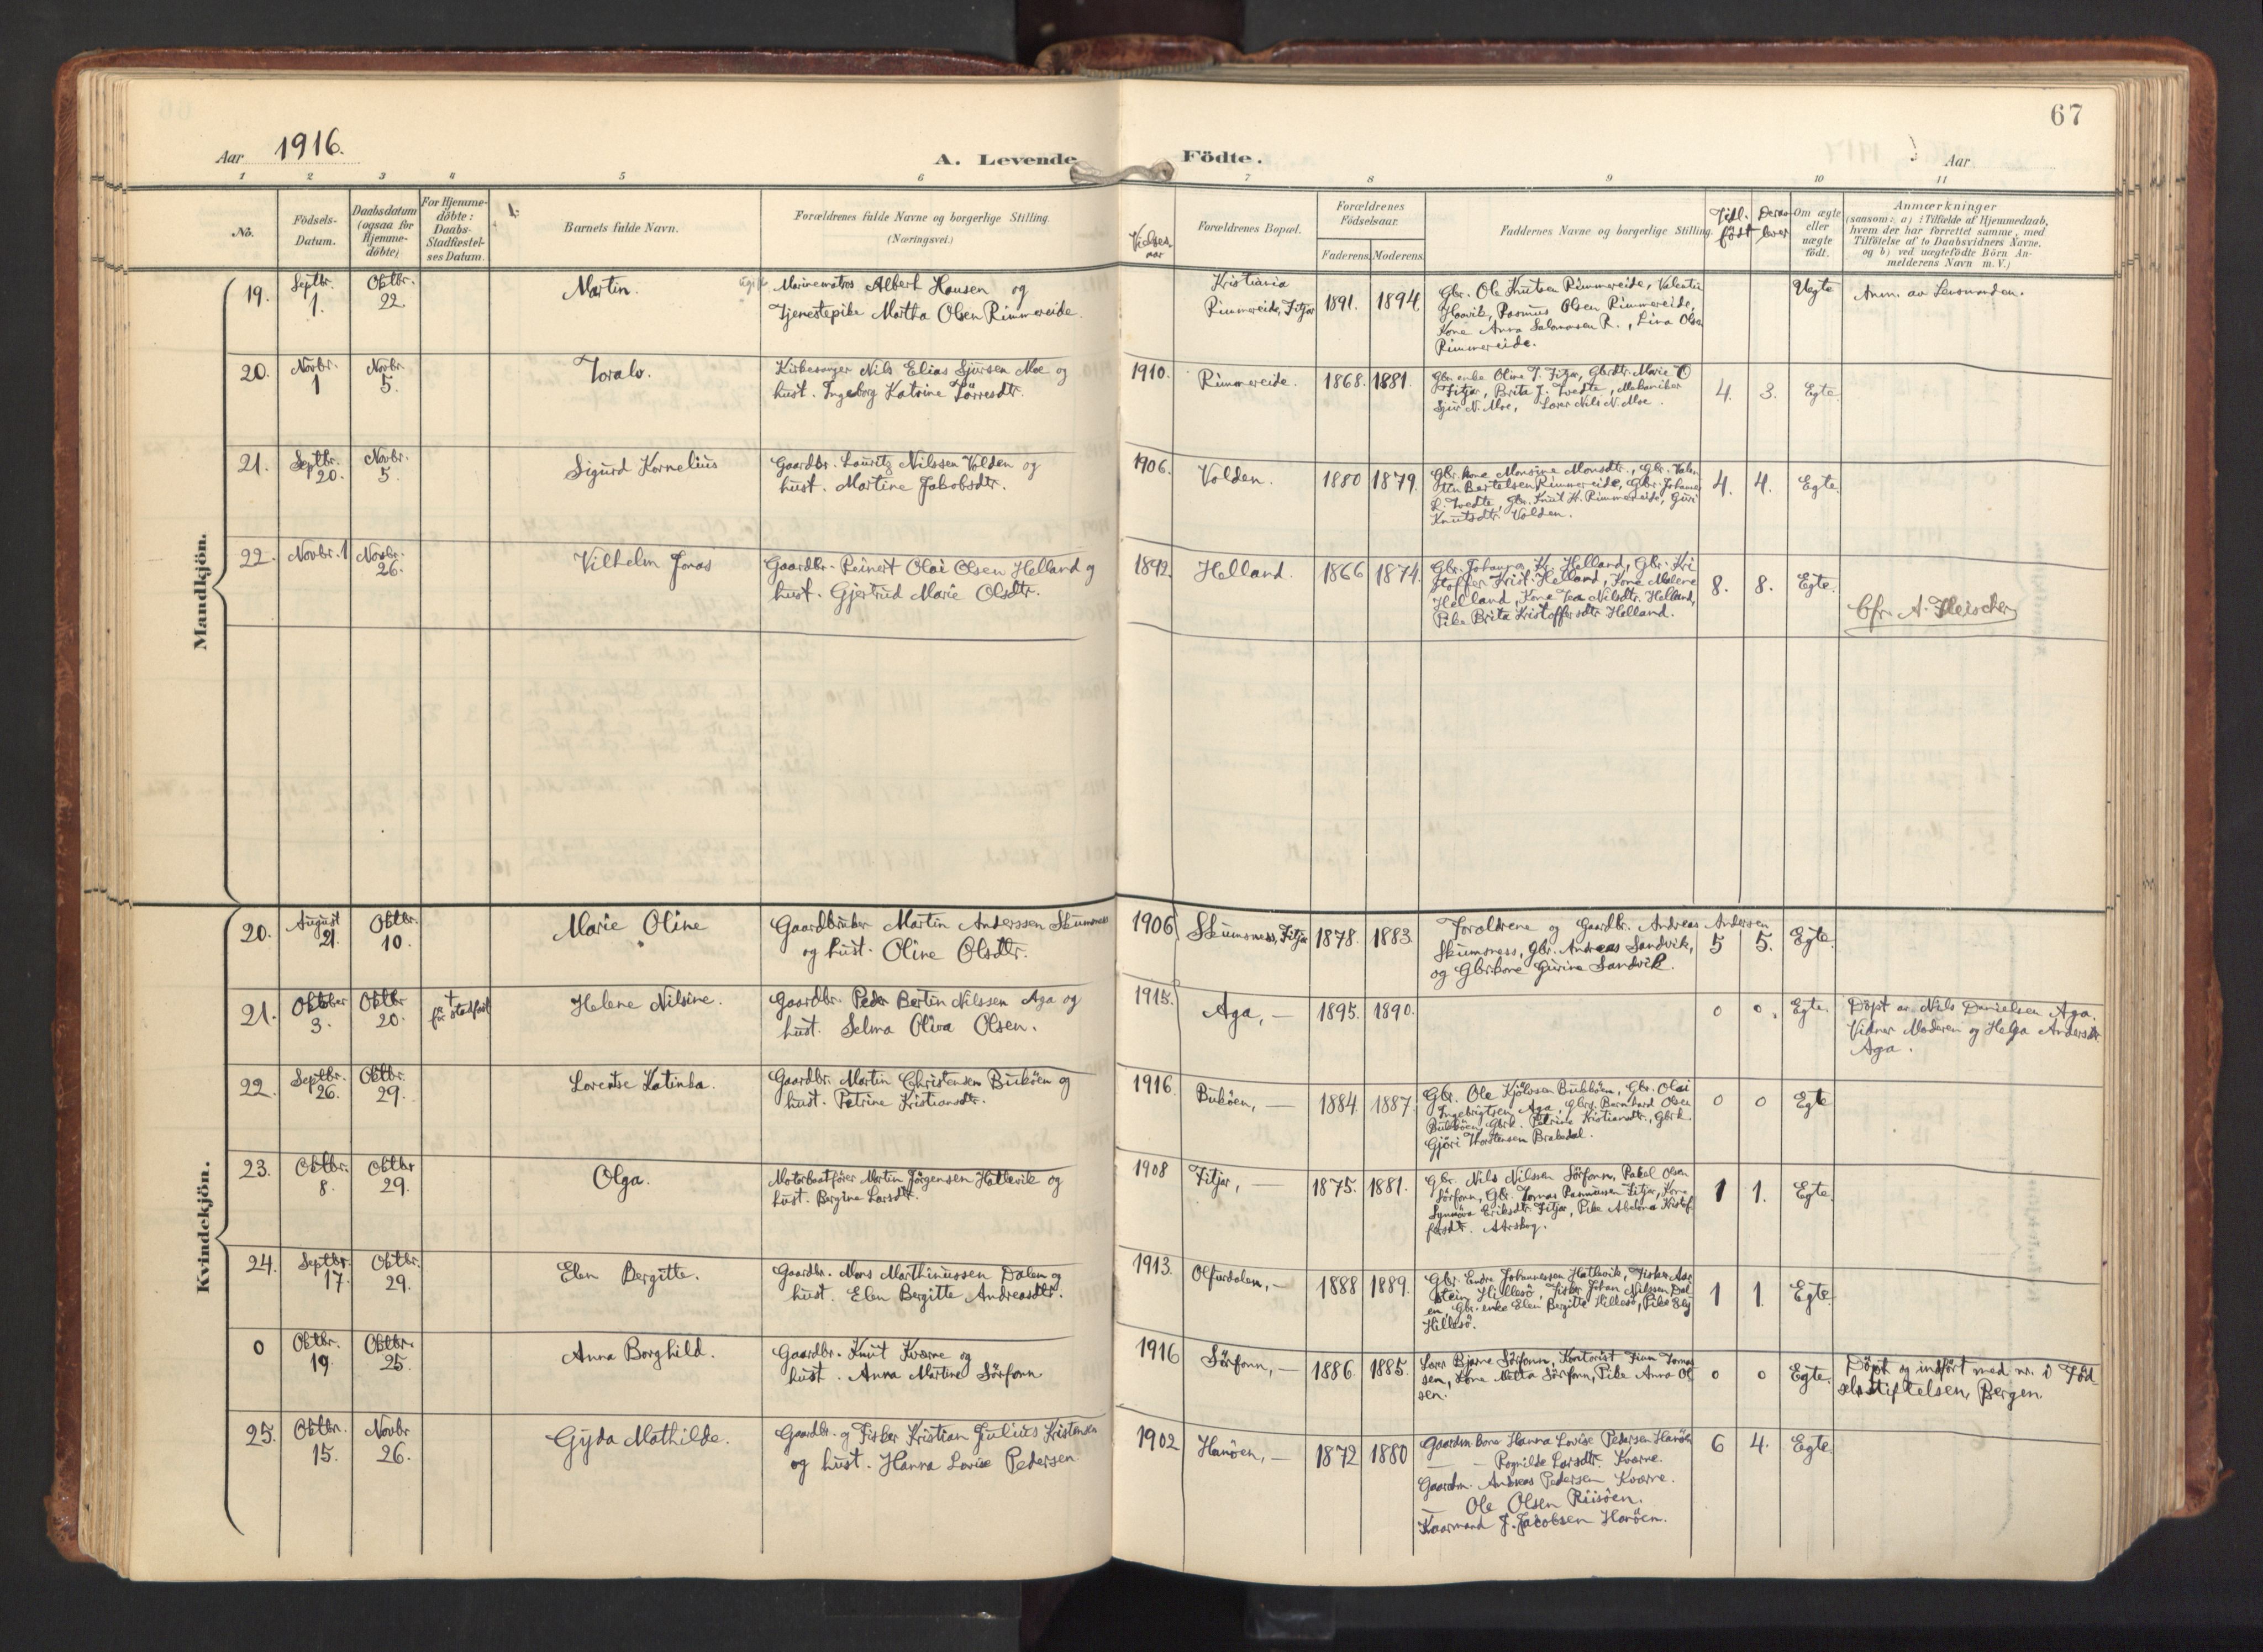 67
Aar 1916.
A. Levende Födte.
Aar
1 2 3 4 5 6 7 8 9 10 11
No.
Födsels-
Datum.
Daabsdatum
(ogsaa for
Hjemme-
döbte)
For Hjemme-
döbte:
Daabs-
Stadfæstel-
ses Datum.
Barnets fulde Navn.
Forældrenes fulde Navne og borgerlige Stilling.
(Næringsvei.)
Vielses-
aar
Forældrenes Bopæl.
Forældrenes
Födselsaar.
Faderens. Moderens.
Faddernes Navne og borgerlige Stilling.
Tidl.
født
Derav
lever
Om ægte
eller
uægte
födt.
Anmærkninger
(saasom: a) i Tilfælde af Hjemmedaab,
hvem der har forrettet samme, med
Tilföielse af to Daabsvidners Navne,
og b) ved uægtefödte Börn An-
melderens Navn m. V.)
Mandkjön.
19.
Septbr.
1.
Oktbr.
22
Martin.
Marinematros Albert Hansen og
Tjenestepike Martha Olsen Rimmereide.
Kristiania
Rimmereide, Fitjar
1891. 1894
Gbr. Ole Knutsen Rimmereide, Valentin
Haavik, Rasmus Olsen Rimmereide,
Kone Anna Salamonsen R., Lina Olsen
Rimmereide.
Uegte
Anm. av Lensmanden.
20.
Novbr.
1
Novbr.
5.
Toralv.
Kirkesanger Nils Elias Sjursen Moe og
hust. Ingeborg Katrine Larsdtr.
1910.
Rimmereide.
1868. 1881.
Gbr. enke Oline T. Fitjar, Gbrdtr. Marie O
Fitjar, Brita J. Tvedte, Mekaniker
Sjur N. Moe, Lærer Nils N. Moe.
4. 3. Egte
21.
Septbr.
20.
Novbr.
5.
Sigurd Kornelius
Gaardbr. Lauritz Nilssen Volden og
hust. Martine Jakobsdtr.
1906.
Volden.
1880 1879.
Gbr. kone Monsine Monsdtr., Gbr. Valen
tin Bertelsen Rimmereide, Gbr. Johannes
L. Tvedte, Gbr. Knut H. Rimmereide, Guri
Knutsdtr. Volden.
4. 4. Egte.
22.
Novbr. 1
Novbr.
26.
Vilhelm Jonas
Gaardbr. Reinert Olai Olsen Helland og
hust. Gjertrud Marie Olsdtr.
1892.
Helland.
1866 1874.
Gbr. Johannes Kr. Helland, Gbr. Kri
stoffer Krist. Helland, Kone Malene
Helland, Kone Tea Nilsdtr. Helland,
Pike Brita Kristoffersdtr. Helland.
8. 8. Egte.
Cfr. A. Fleischer
Kvindekjön.
20.
August
21.
Oktbr.
10.
Marie Oline
Gaardbruker Martin Anderssen Skumsnes
og hust. Oline Olsdtr.
1906
Skumsness, Fitjar
1878. 1883.
Foraldrene og Gaardbr. Andreas Andersen
Skumsness, Gbr. Andreas Sandvik,
og Gbrkone Gurine Sandvik.
5 5. Egte.
21.
Oktober
3.
Oktbr
20.
+
før stadfest
Helene Nilsine.
Gaardbr. Peder Bertin Nilssen Aga og
hust. Selma Oliva Olsen.
1915.
Aga, —
1895. 1890.
0 0. Egte.
Døpt av Nils Danielsen Aga.
Vidner Moderen og Helga Andersdtr.
Aga.
22.
Septbr.
26.
Oktbr.
29.
Lorentse Katinka.
Gaardbr. Martin Christensen Bukøen og
hust. Petrine Kristiansdtr.
1916.
Bukøen, —
1884. 1887.
Gbr. Ole Kjølvsen Bukkøen, Gbr. Olai
Ingebrigtsen Aga, Gbrs. Bernhard Olsen
Bukkøen, Gbrk. Petrine Kristiansdtr., Gbrk.
Gjöri Thorstensen Brekedal.
0 0 Egte
23.
Oktbr.
8.
Oktbr
29.
Olga.
Motorbaatfører Martin Jørgensen Hatlevik og
hust. Bergine Larsdtr.
1908
Fitjar, —
1875. 1881.
Gbr. Nils Nilssen Sørfonn, Rakel Olsen
Sørfonn, Gbr. Tomas Rasmussen Fitjar, Kone
Synnøva Eriksdtr. Fitjar, Pike Abelona Kristof
fersdtr. Aarskog.
1 1. Egte.
24.
Septbr.
17.
Oktbr.
29.
Elen Bergitte.
Gaardbr. Mons Marthinussen Dalen og
hust. Elen Bergitte Andreasdtr.
1913.
Olfurdalen, —
1888 1889.
Gbr. Endre Johannessen Hatlevik, Fisker Aar
stein Hillesö, Fisker Johan Nilssen Dal
en, Gbr. enke Elen Bergitte Hillesö, Pike Elly
Hillesö.
1 1. Egte.
0
Oktbr.
19.
Oktbr.
25.
Anna Borghild.
Gaardbr. Knut Kværne og
hust. Anna Martine Sørfonn
1916
Sørfonn, —
1886. 1885.
Lærer Bjarne Sørfonn, Kontorist Finn Tomas
sen, Kone Netta Sørfonn, Pike Anna Ol
sen.
0 0 Egte.
Døpt og indført med nr. i Fød-
selsstiftelsen, Bergen
25.
Oktbr.
15.
Novbr
26.
Gyda Mathilde.
Gaardbr. og Fisker Kristian Julius Kristensen
og hust. Hanna Lovise Pedersen
1902
Hanøen, —
1872 1880
Gaardm. kone Hanna Lovise Pedersen Hanøen
— - Rognilde Larsdtr. Kværne.
Gaardm. Andreas Pedersen Kværne.
— Ole Olsen Riisöen.
Kaarmand J. Jacobsen Hanöen.
6 4. Egte.